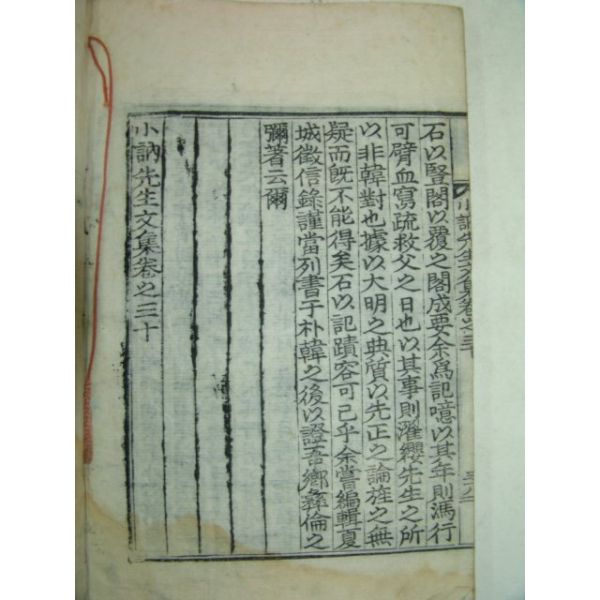 小訥先生文集卷之三十
石以豎閣以覆之閣成要余爲記噫以其年則馮行
可臂血寫疏救父之日也以其事則濯纓先生之所
以非韓對也據以大明之典質以先正之論旌之無
疑而旣不能得矣石以記蹟容可已乎余嘗編輯夏
城徵信錄謹當列書于朴韓之後以證吾鄕彝倫之
彌著云爾
小訥先生文集卷之三十